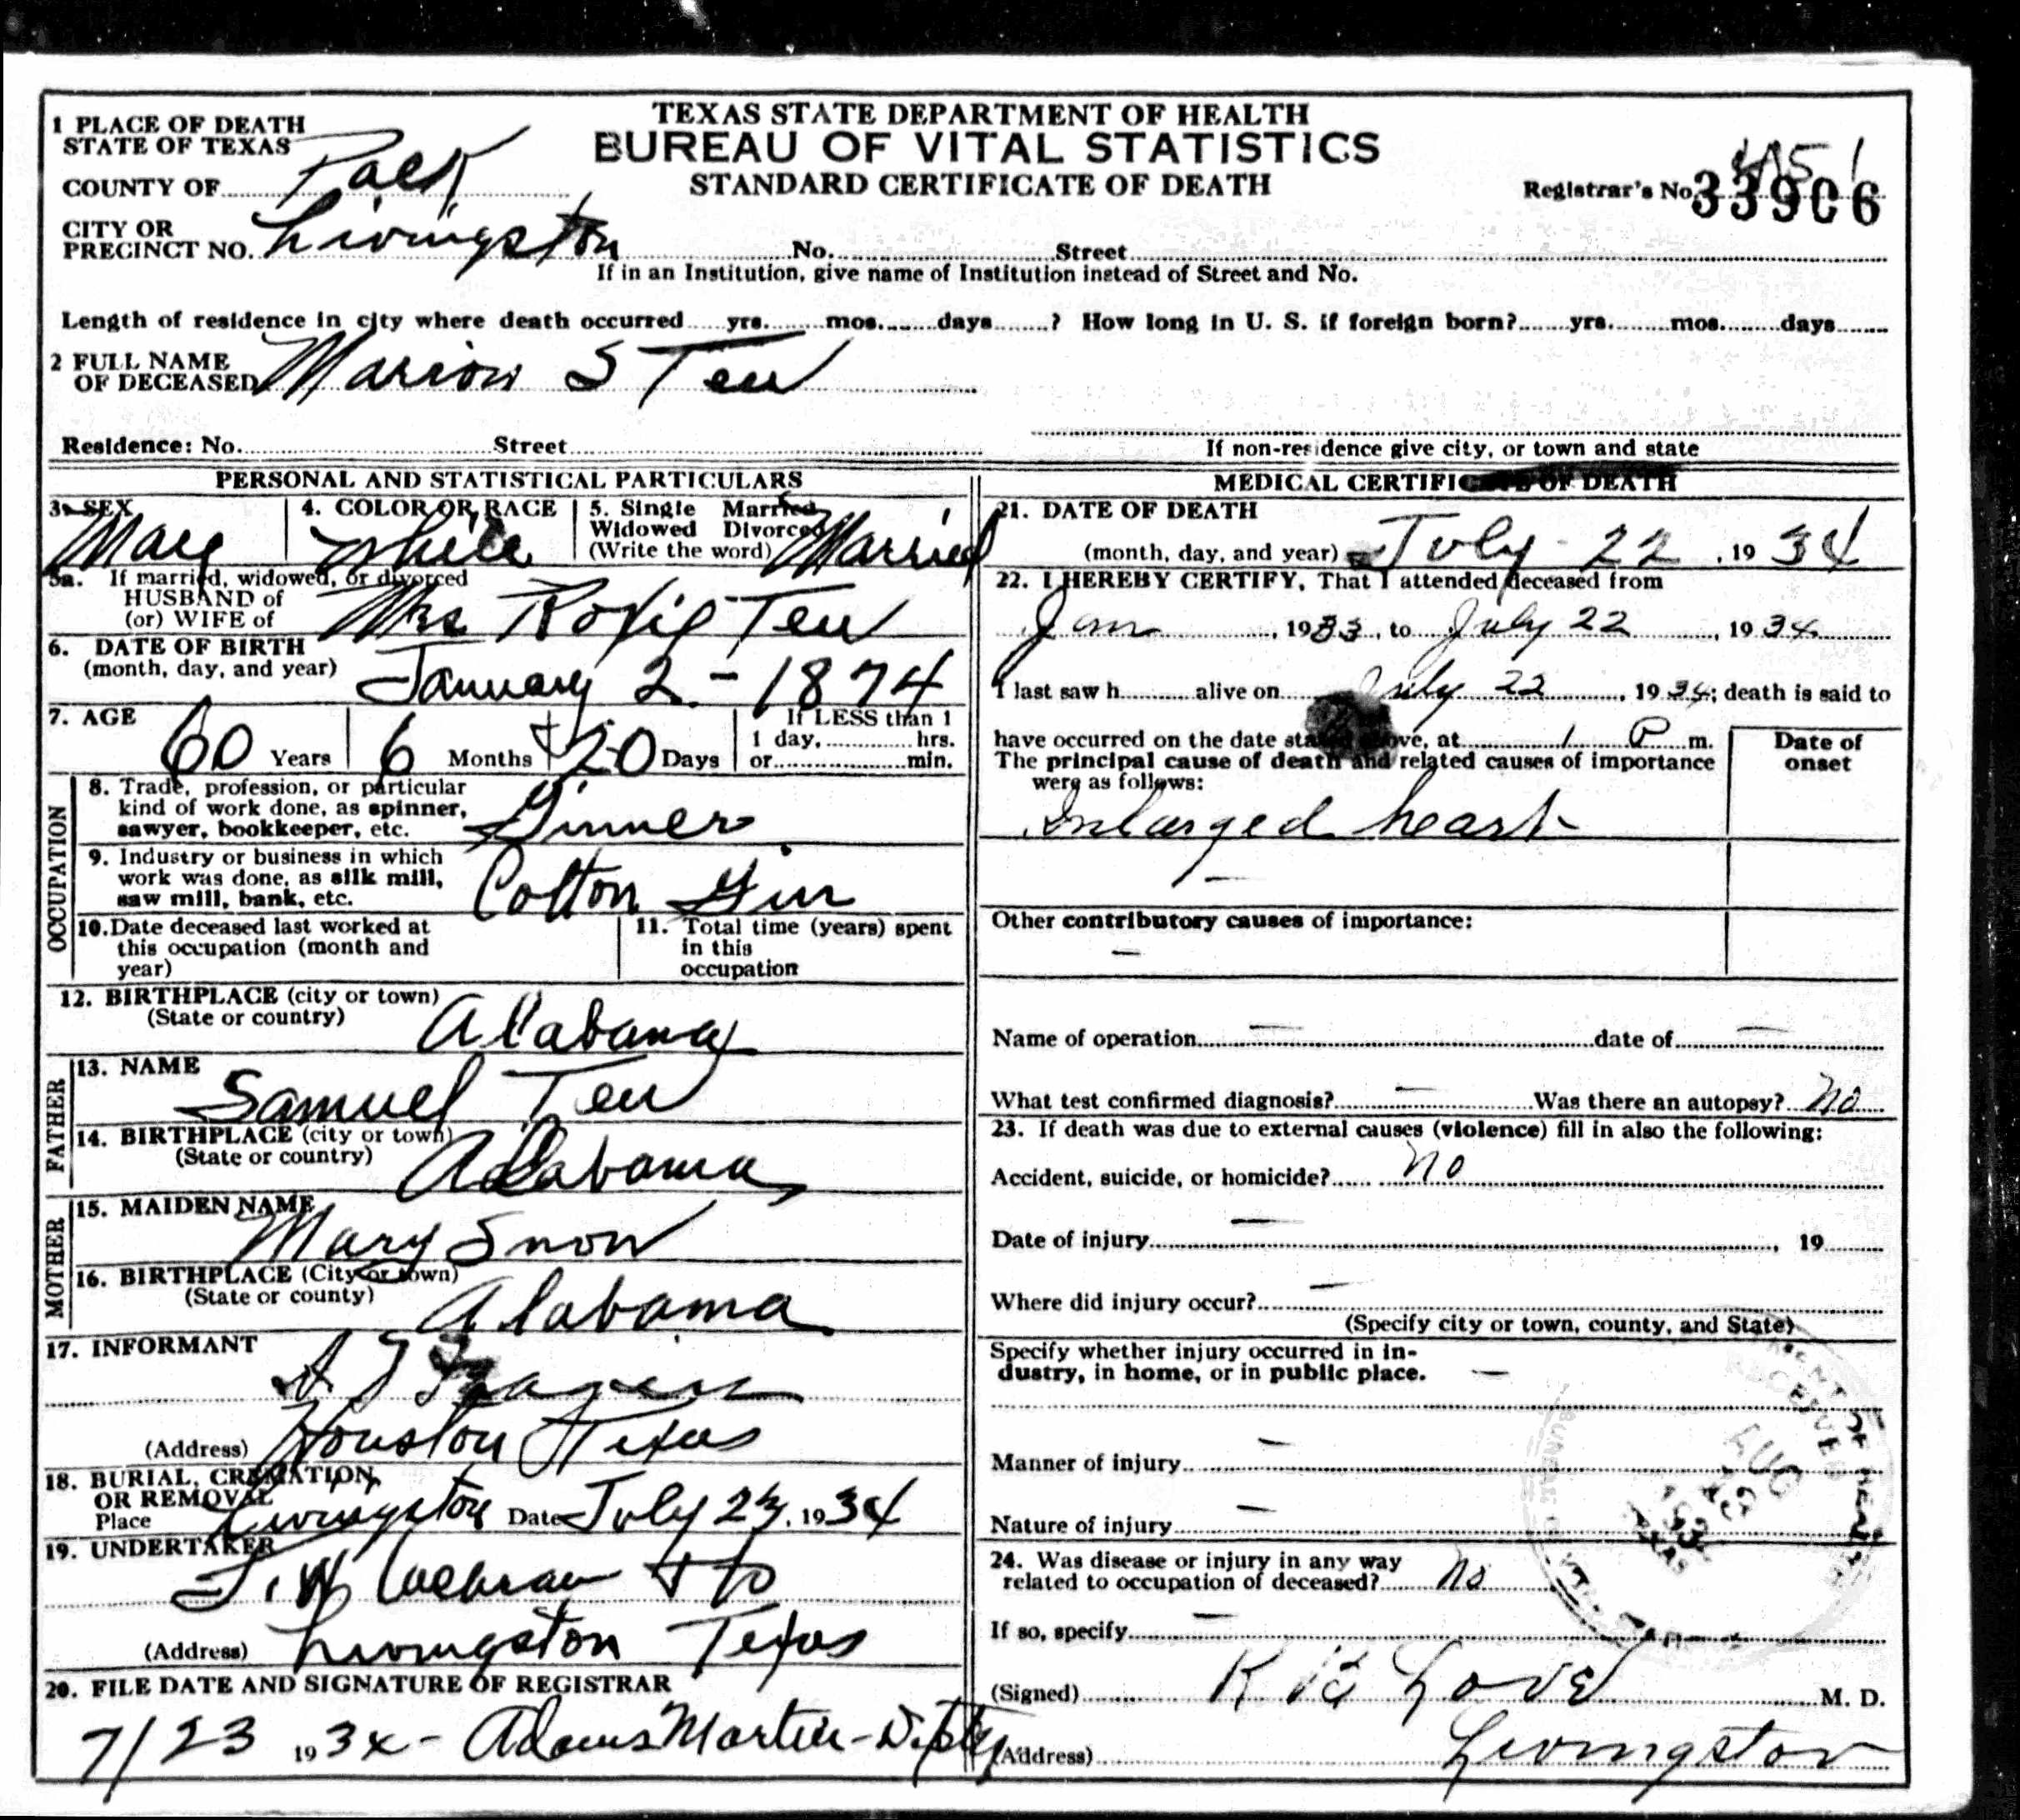 TEXAS STATE DEPARTMENT OF HEALTH
BUREAU OF VITAL STATISTICS
STANDARD CERTIFICATE OF DEATH
1 PLACE OF DEATH
STATE OF TEXAS
COUNTY OF Polk
Registrar's No. 33906
CITY OR
PRECINCT NO. Livingston No. Street
If in an Institution, give name of Institution instead of Street and No.
Length of residence in city where death occurred yrs. mos. days ? How long in U. S. if foreign born? yrs. mos. days
2 FULL NAME
OF DECEASED Marion S Tew
Residence: No. Street
If non-residence give city, or town and state
PERSONAL AND STATISTICAL PARTICULARS
3. SEX
Male
4. COLOR OR RACE
White
5. Single Married
Widowed Divorced
(Write the word) Married
5a. If married, widowed, or divorced
HUSBAND of
(or) WIFE of Mrs Roxie Tew
6. DATE OF BIRTH
(month, day, and year) January 2 - 1874
7. AGE
60 Years 6 Months 20 Days
If LESS than 1
1 day, hrs.
or min.
OCCUPATION
8. Trade, profession, or particular
kind of work done, as spinner,
sawyer, bookkeeper, etc. Ginner
9. Industry or business in which
work was done, as silk mill,
saw mill, bank, etc. Cotton Gin
10. Date deceased last worked at
this occupation (month and
year)
11. Total time (years) spent
in this
occupation
12. BIRTHPLACE (city or town)
(State or country) Alabama
FATHER
13. NAME
Samuel Tew
14. BIRTHPLACE (city or town)
(State or country) Alabama
MOTHER
15. MAIDEN NAME
Mary Snow
16. BIRTHPLACE (City or town)
(State or county) Alabama
17. INFORMANT
(Address) Houston Texas
18. BURIAL, CREMATION,
OR REMOVAL
Place Livingston Date July 23, 1934
19. UNDERTAKER
T. W Cochran + Co
(Address) Livingston Texas
20. FILE DATE AND SIGNATURE OF REGISTRAR
7/23 1934 - Adams Martin - Dpty
MEDICAL CERTIFICATE OF DEATH
21. DATE OF DEATH
(month, day, and year) July - 22, 1934
22. I HEREBY CERTIFY, That I attended deceased from
Jan, 1933, to July 22, 1934
I last saw h alive on July 22, 1934; death is said to
have occurred on the date stated above, at 1 P m.
The principal cause of death and related causes of importance
were as follows:
Date of
onset
Enlarged heart
Other contributory causes of importance:
Name of operation — date of —
What test confirmed diagnosis? — Was there an autopsy? no
23. If death was due to external causes (violence) fill in also the following:
Accident, suicide, or homicide? no
Date of injury —, 19
Where did injury occur? —
(Specify city or town, county, and State)
Specify whether injury occurred in in-
dustry, in home, or in public place. —
Manner of injury —
Nature of injury —
24. Was disease or injury in any way
related to occupation of deceased? no
If so, specify —
(Signed) Love M. D.
(Address) Livingston
RECEIVED
AUG
TEXAS